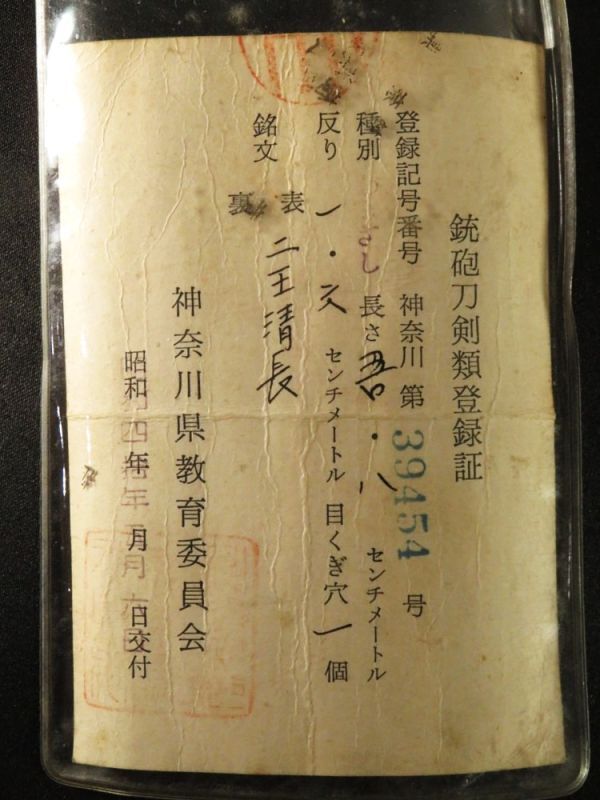 銃砲刀剣類登録証
登録記号番号 神奈川 第 39454 号
種別 さし 長さ 吾・ センチメートル
反り 一・ センチメートル 目くぎ穴 一 個
銘文 表 二王清長
裏
神奈川県教育委員会
昭和四 年 月 日交付